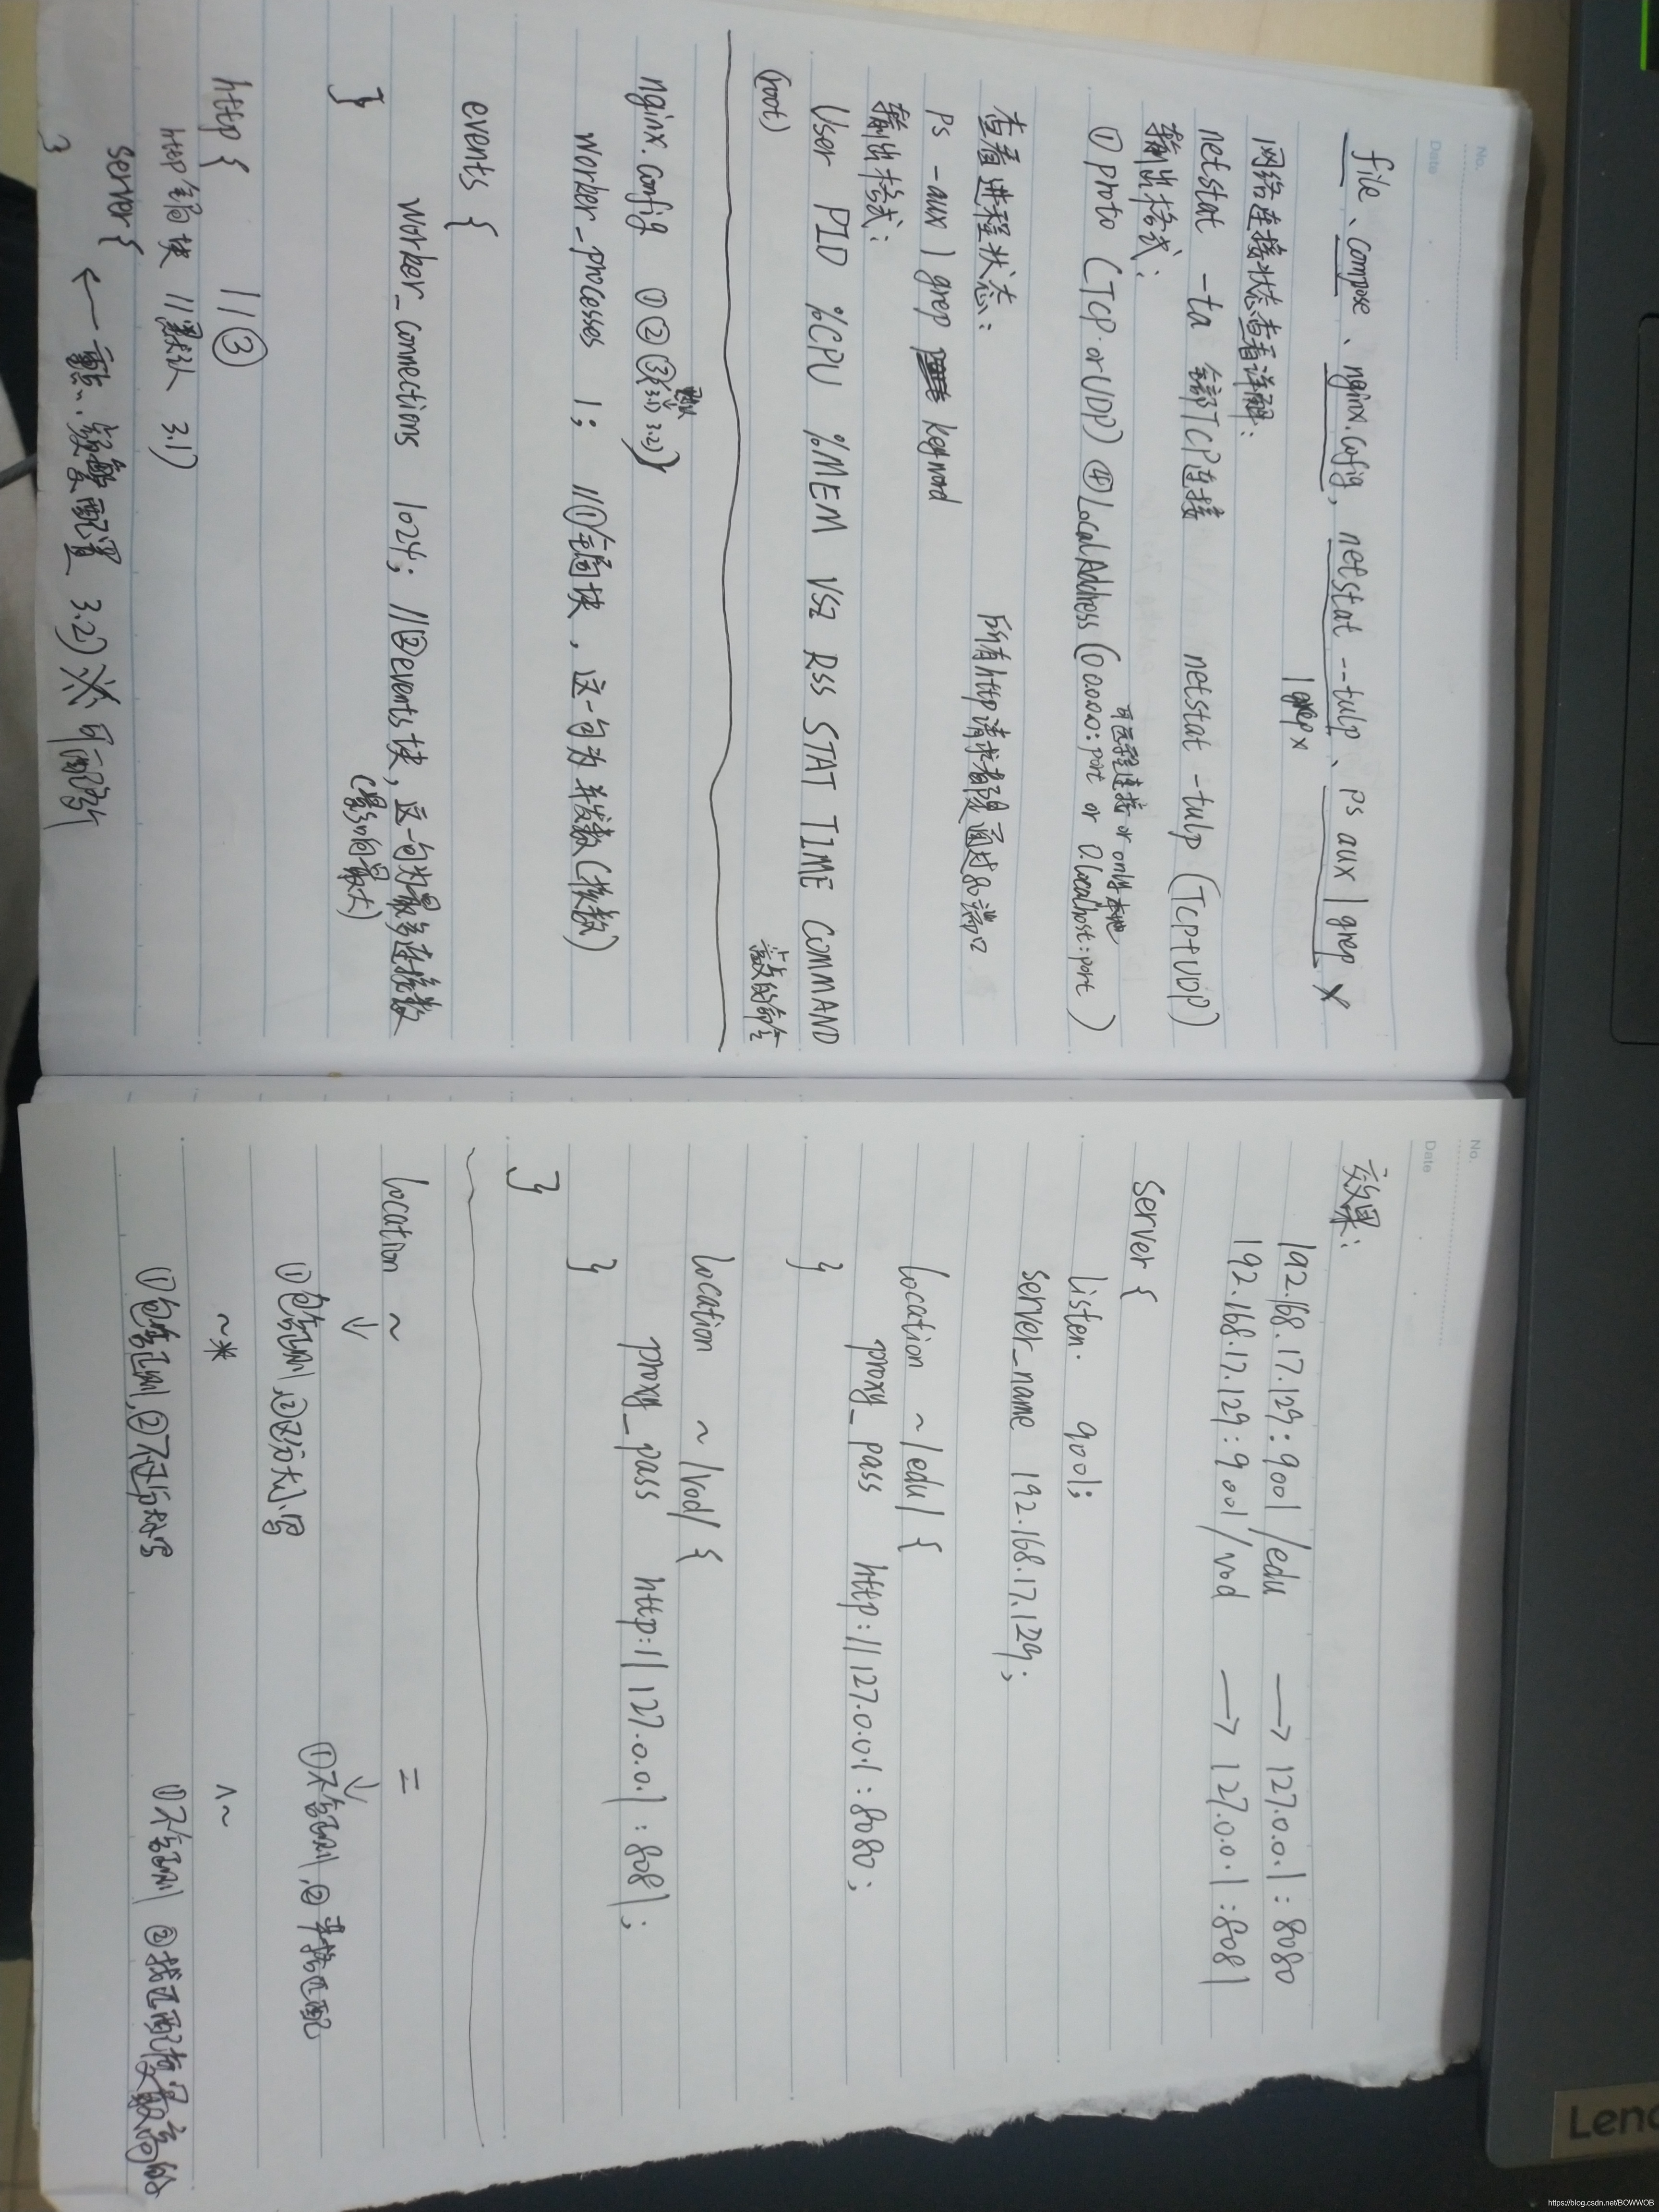 No.
Date
file、compose、nginx.cofig, netstat --tulp、ps aux | grep x
| grep x
网络连接状态查看详解:
netstat -ta 全部TCP连接 netstat -tulp (TCP+UDP)
输出格式:
可远程连接 or only本地
① proto (TCP or UDP) ④ Local Address (0.0.0.0:port or 0.localhost:port)
查看进程状态: 所有http请求都是通过80端口
ps -aux | grep keyword
输出格式:
User PID %CPU %MEM VSZ RSS STAT TIME COMMAND
(root) 的命令
nginx.config ① ② ③ 3.1) 3.2)
默认
worker_processes 1; //①全局块,这一句为并发数(核数)
events {
worker_connections 1024; //②events块,这一句为最多连接数
}
http { //③
http全局块 //默认 3.1)
server { ← 重点、频繁配置 3.2) ※可配多个
}
No.
Date
效果:
192.168.17.129:9001/edu → 127.0.0.1:8080
192.168.17.129:9001/vod → 127.0.0.1:8081
server {
listen 9001;
server_name 192.168.17.129;
location ~ /edu/ {
proxy_pass http://127.0.0.1:8080;
}
location ~ /vod/ {
proxy_pass http://127.0.0.1:8081;
}
}
location ~ =
①包含正则,②区分大小写 ①不含正则,②严格匹配
~* ^~
①包含正则,②不区分大小写 ①不含正则 ②找匹配度最高的
Leno
https://blog.csdn.net/BOWWOB